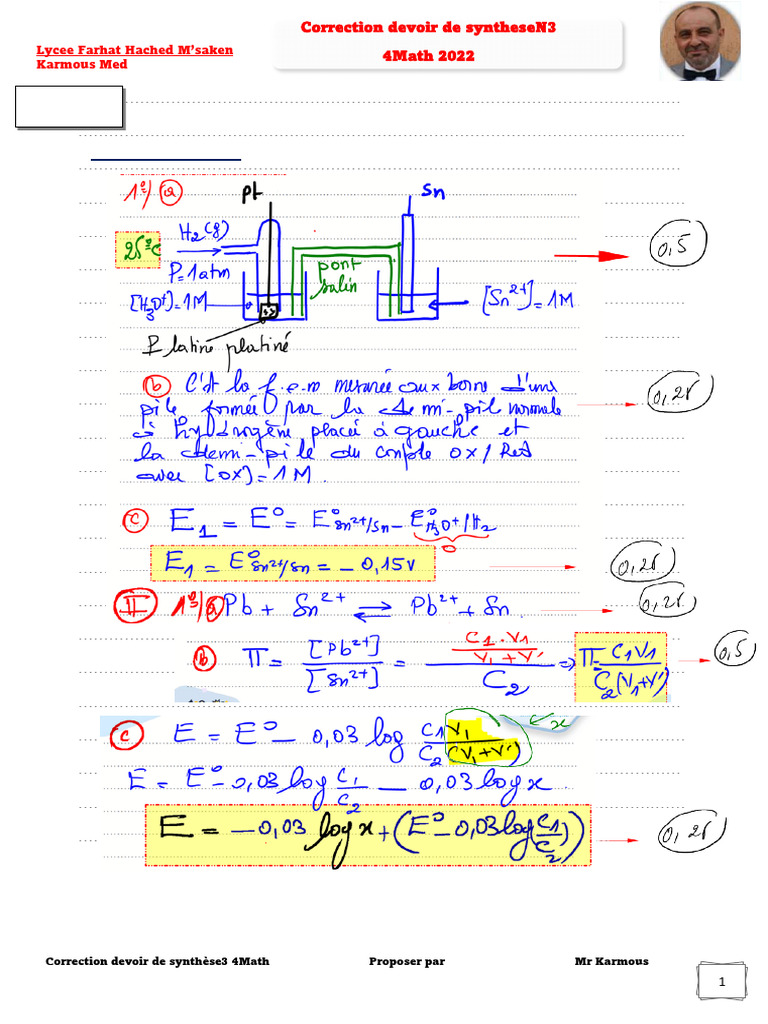 Correction devoir de syntheseN3
Lycee Farhat Hached M'saken
4Math 2022
Karmous Med
1°/ a
pt
Sn
H2(g)
25°C
P=1atm
pont salin
[H3O+]=1M
[Sn2+]=1M
0,5
Platine platiné
b C'est la f.e.m mesurée aux borne d'une
pile formée par la demi-pile normale
à hydrogène placée à gauche et
la demi-pile du couple ox/Red
avec [ox]=1M.
0,25
c E1 = E° = E°Sn2+/Sn - E°H3O+/H2
0
E1 = E°Sn2+/Sn = -0,15v
0,25
II 1°/a Pb + Sn2+ ⇌ Pb2+ + Sn.
0,25
b π = [Pb2+]/[Sn2+] = (C1.V1/(V1+V'))/C2 => π = C1V1/C2(V1+V')
0,5
c E = E° - 0,03 log C1 V1/C2 (V1+V')
x
E = E° - 0,03log C1/C2 - 0,03 log x
E = -0,03 log x + (E° - 0,03log(C1/C2))
0,25
Correction devoir de synthèse3 4Math Proposer par Mr Karmous
1